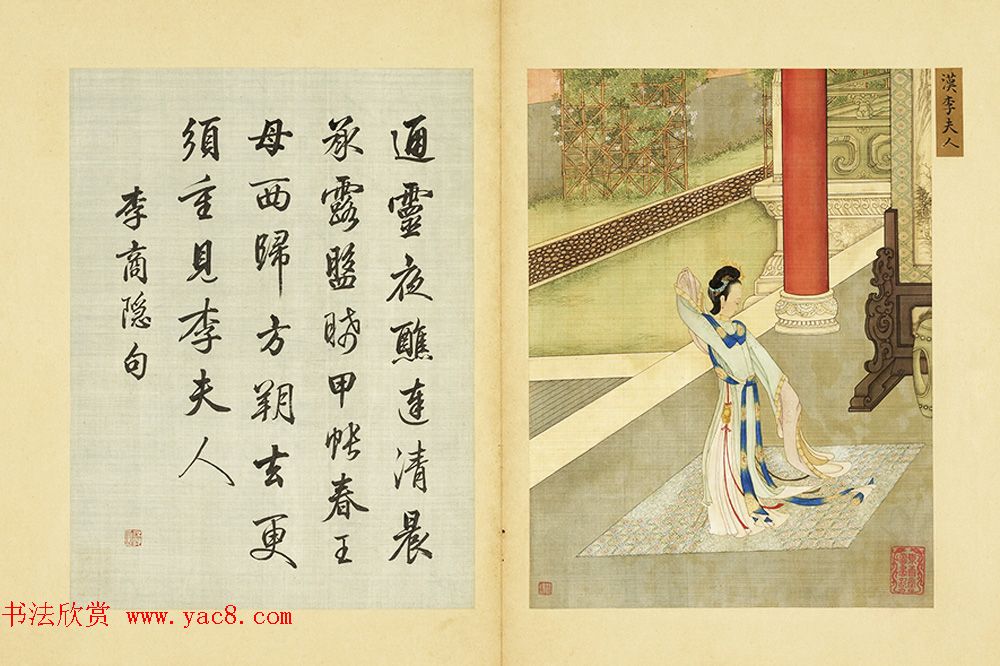 漢李夫人
通靈夜醮達清晨
承露盤晞甲帳春王
母西歸方朔去更
須重見李夫人
李商隐句
书法欣赏 www.yac8.com